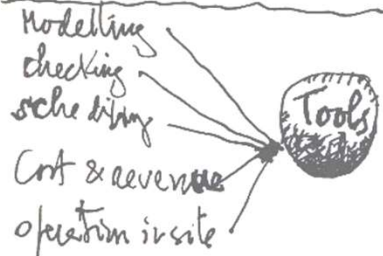 Modelling
checking
scheduling
Cost & revenue
operation in site
Tools